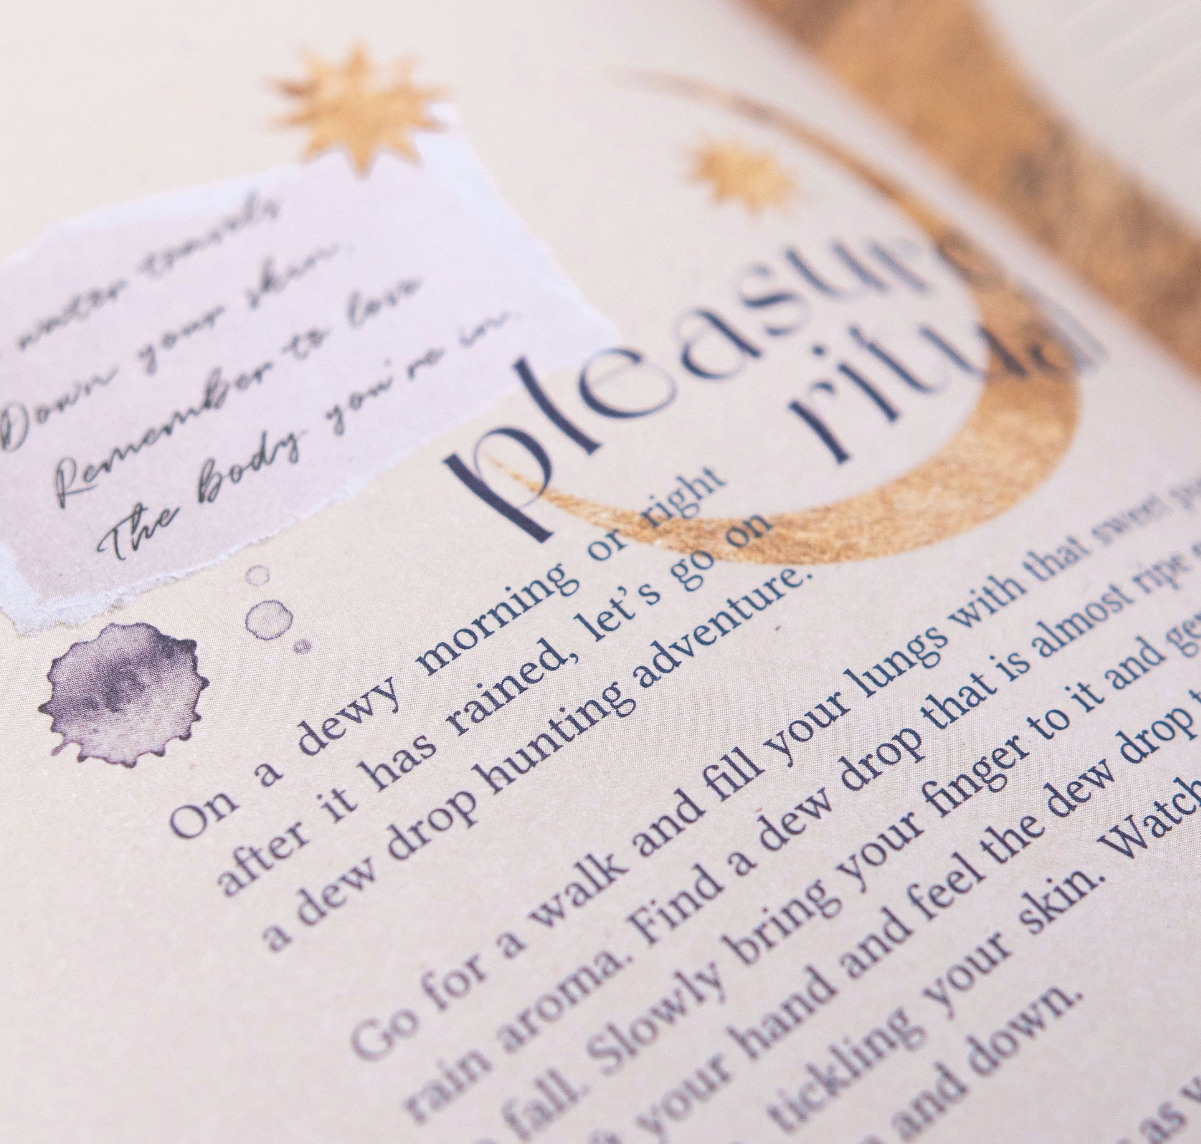 water travels
Down your skin,
Remember to love
The Body you're in.
pleasure
ritual
On a dewy morning or right
after it has rained, let's go on
a dew drop hunting adventure.
Go for a walk and fill your lungs with that sweet
rain aroma. Find a dew drop that is almost ripe
fall. Slowly bring your finger to it and
your hand and feel the dew drop
tickling your skin. Watch
and down.
as